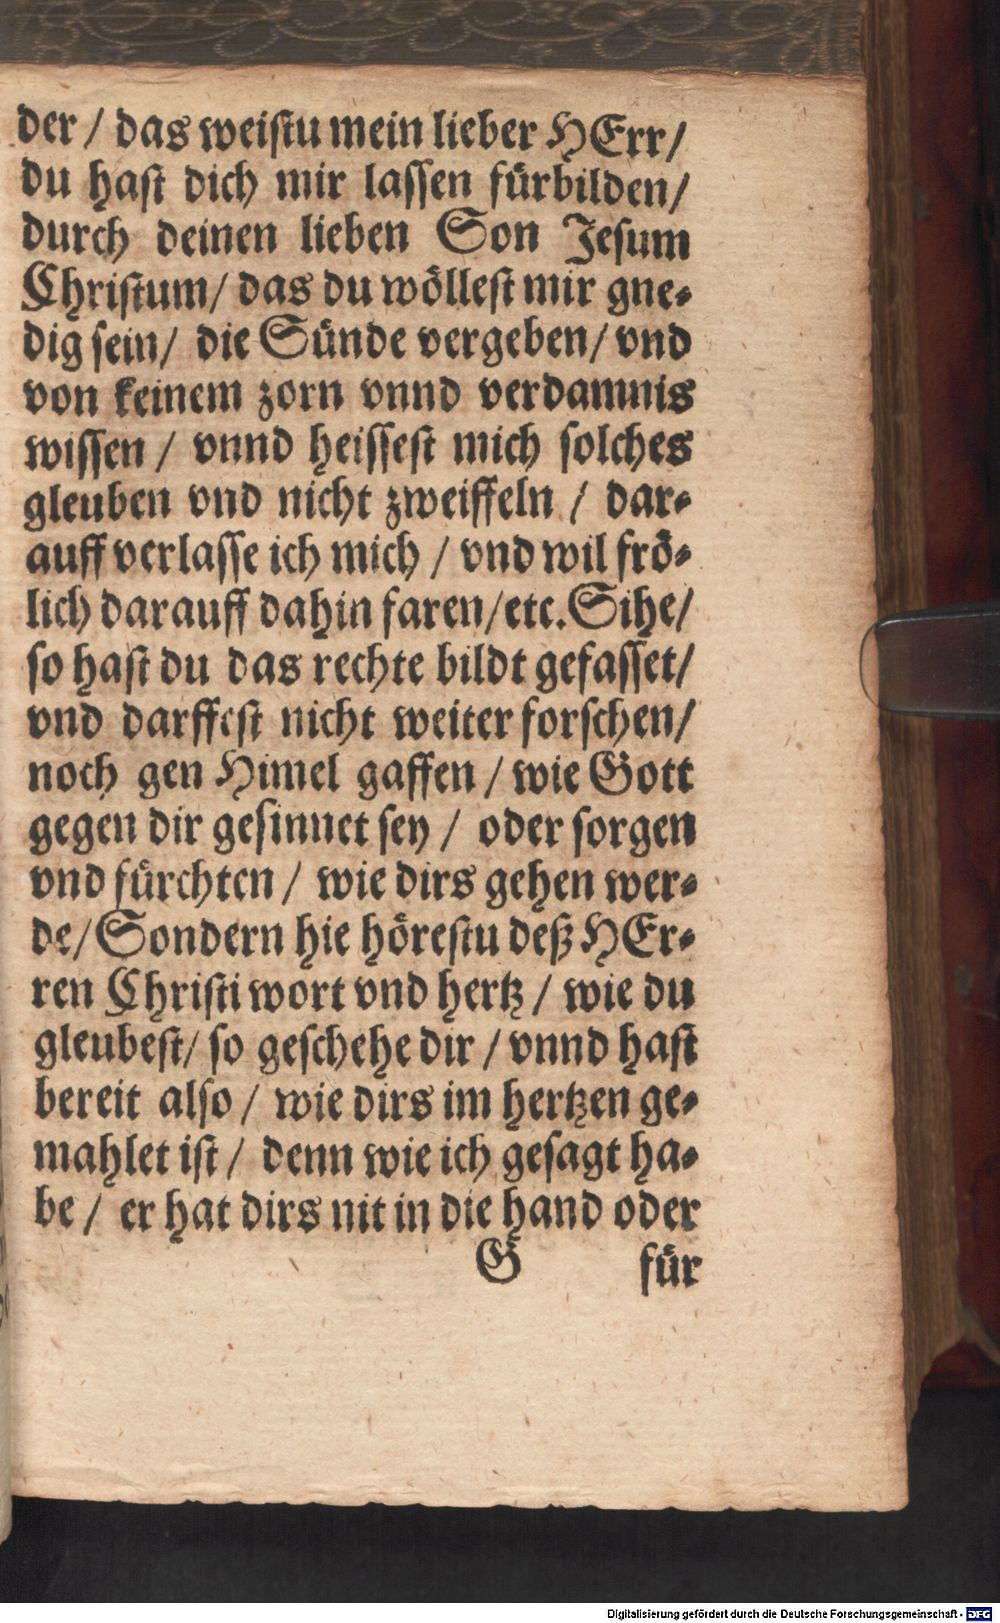 der / das weistu mein lieber HErr /
du hast dich mir lassen fürbilden /
durch deinen lieben Son Jesum
Christum / das du wöllest mir gne-
dig sein / die Sünde vergeben / vnd
von keinem zorn vnnd verdamnis
wissen / vnnd heissest mich solches
gleuben vnd nicht zweiffeln / dar-
auff verlasse ich mich / vnd wil frö-
lich darauff dahin faren / etc. Sihe /
so hast du das rechte bildt gefasset /
vnd darffest nicht weiter forschen /
noch gen Himel gaffen / wie Gott
gegen dir gesinnet sey / oder sorgen
vnd fürchten / wie dirs gehen wer-
de / Sondern hie hörestu deß HEr-
ren Christi wort vnd hertz / wie du
gleubest / so geschehe dir / vnnd hast
bereit also / wie dirs im hertzen ge-
mahlet ist / denn wie ich gesagt ha-
be / er hat dirs nit in die hand oder
G für
Digitalisierung gefördert durch die Deutsche Forschungsgemeinschaft - DFG